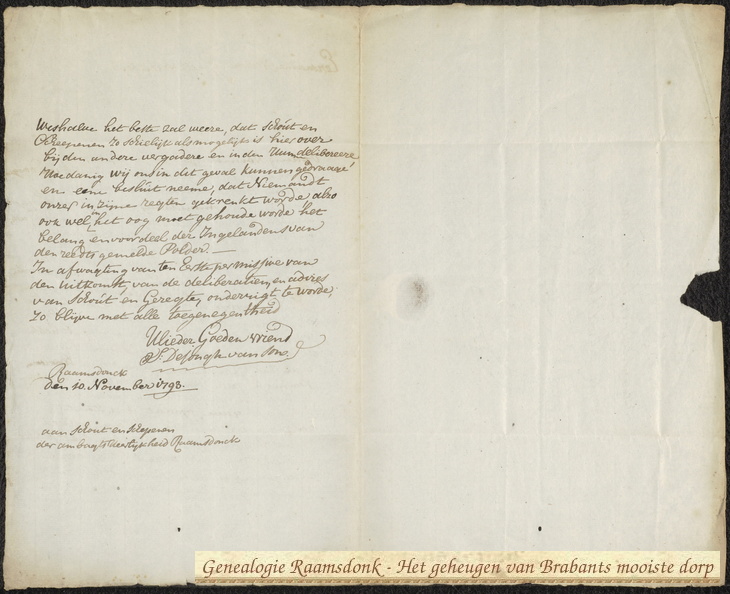 Weshalve het beste zal weere, dat schout en
Scheepenen zo schielijk als mogelijk is hier over
bij den andere vergadere en inden deliberere
hoedanig wij ons in dit geval kunnen gedraage
en eene besluit neeme, dat Niemandt
onzer in zijne regten gekrenkt worde, also
ook wel in het oog moet gehoude worde het
belang en voordeel der Ingelanden van
den reedts gemelde Polder.
In afwagting van ten Eerste per missive van
den uitkomst, van de deliberatien, en advies
van schout en Geregte, onderrigt te worde,
zo blijve met alle toegenegentheid
Ulieder Goeden vriend
De Jongh van
Raamsdonck
den 10. November 1793.
aan schout en schepenen
der ambagtsheerlijkheid Raamsdonck
Genealogie Raamsdonk - Het geheugen van Brabants mooiste dorp